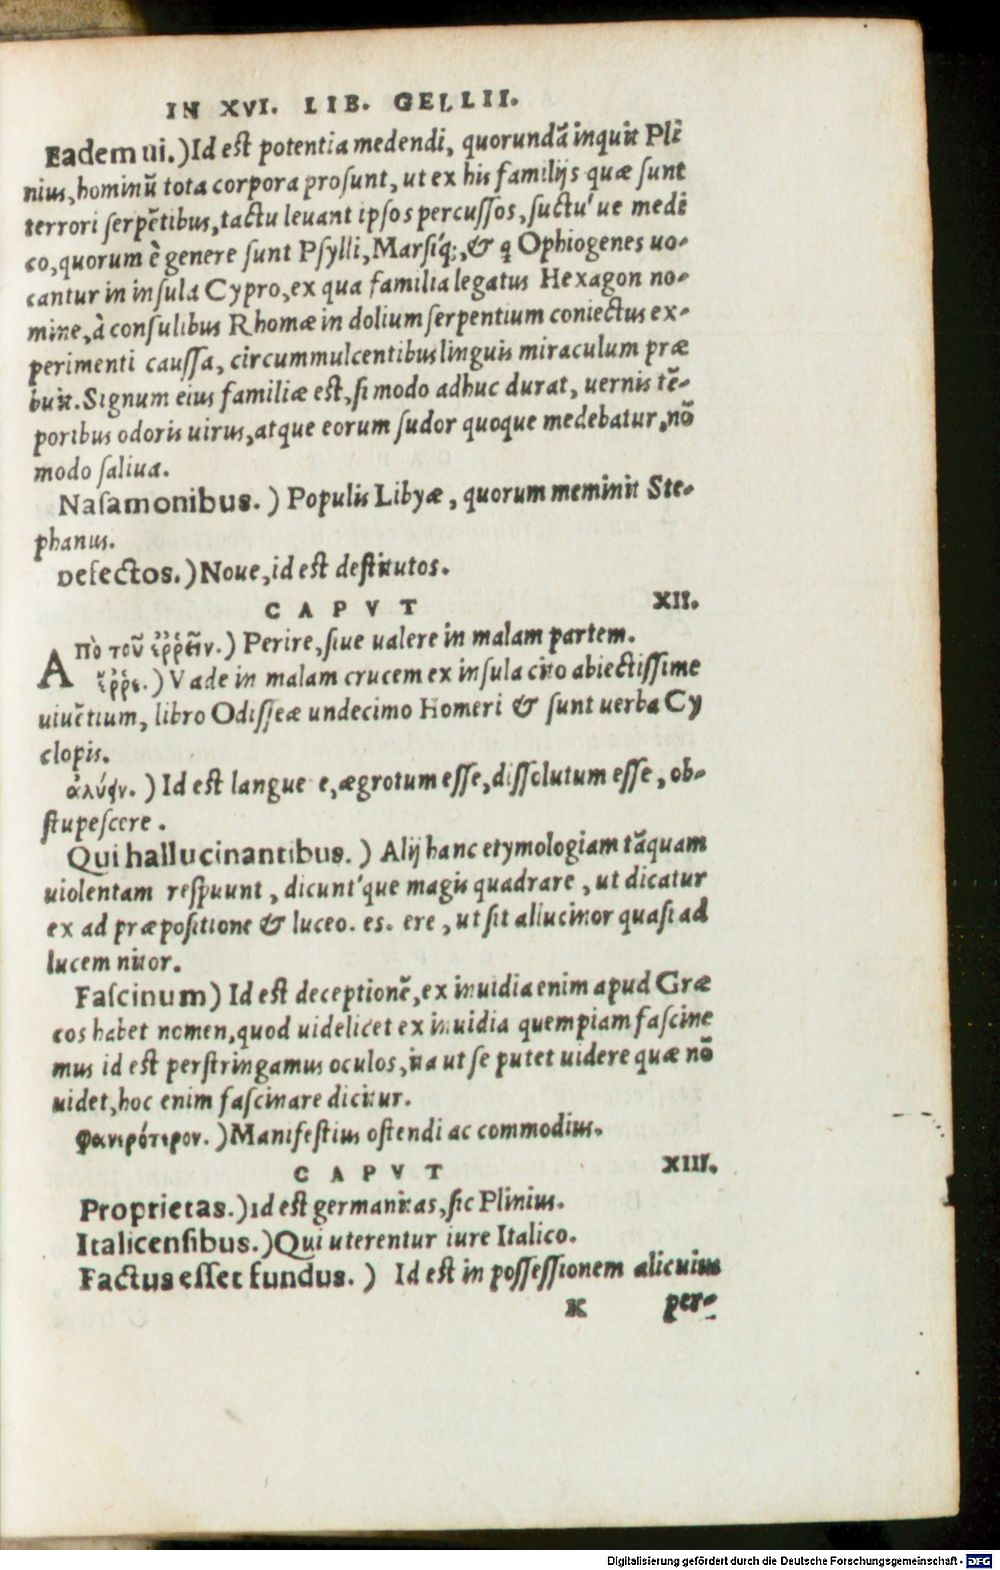 IN XVI. LIB. GELLII.
Eadem ui.) Id est potentia medendi, quorundã inquit Pli
nius, hominũ tota corpora prosunt, ut ex his familijs quæ sunt
terrori serpẽtibus, tactu leuant ipsos percussos, suctu'ue medi
co, quorum è genere sunt Psylli, Marsiq́;, & q Ophiogenes uo-
cantur in insula Cypro, ex qua familia legatus Hexagon no-
mine, à consulibus Rhomæ in dolium serpentium coniectus ex-
perimenti caussa, circummulcentibus linguis miraculum præ
buit. Signum eius familiæ est, si modo adhuc durat, uernis tẽ-
poribus odoris uirus, atque eorum sudor quoque medebatur, nõ
modo saliua.
Nasamonibus.) Populis Libyæ, quorum meminit Ste-
phanus.
Defectos.) Noue, id est destitutos.
CAPVT XII.
Aπὸ τοῦ ἐῤῥεῖν.) Perire, siue ualere in malam partem.
ἔῤῥε.) Vade in malam crucem ex insula cito abiectissime
uiuẽtium, libro Odisseæ undecimo Homeri & sunt uerba Cy
clopis.
ἀλύειν.) Id est langue e, ægrotum esse, dissolutum esse, ob-
stupescere.
Qui hallucinantibus.) Alij hanc etymologiam tãquam
uiolentam respuunt, dicunt'que magis quadrare, ut dicatur
ex ad præpositione & luceo. es. ere, ut sit allucinor quasi ad
lucem nitor.
Fascinum) Id est deceptionẽ, ex inuidia enim apud Græ
cos habet nomen, quod uidelicet ex inuidia quempiam fascine
mus id est perstringamus oculos, ita ut se putet uidere quæ nõ
uidet, hoc enim fascinare dicitur.
φανερότερον.) Manifestius ostendi ac commodius.
CAPVT XIII.
Proprietas.) id est germanitas, sic Plinius.
Italicensibus.) Qui uterentur iure Italico.
Factus esset fundus.) Id est in possessionem alicuius
K per-
Digitalisierung gefördert durch die Deutsche Forschungsgemeinschaft - DFG